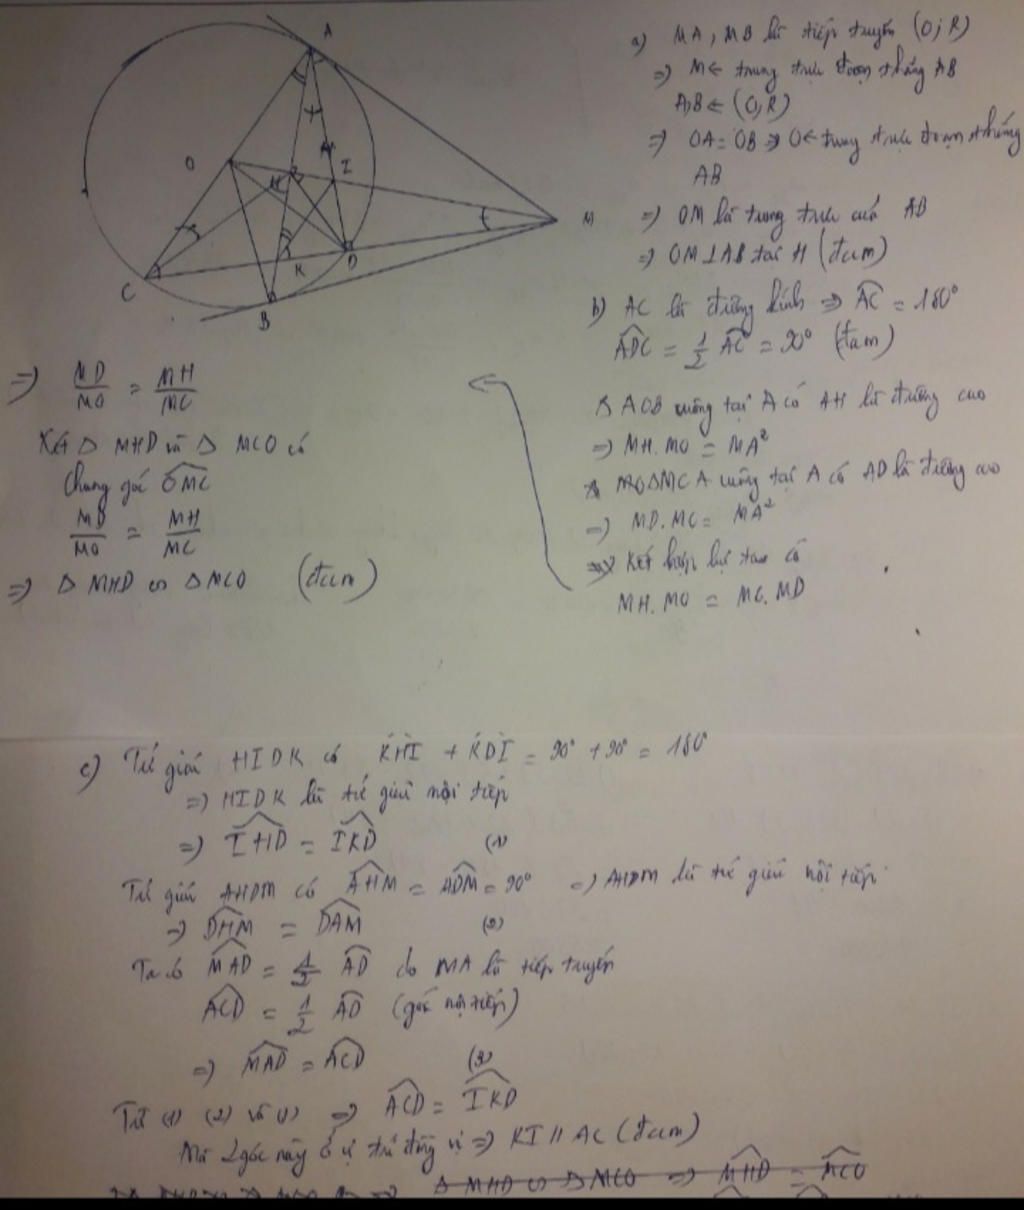 A
O
H
I
M
K
D
C
B
a) MA, MB là tiếp tuyến (O; R)
=> M ∈ trung trực đoạn thẳng AB
A, B ∈ (O, R)
=> OA = OB => O ∈ trung trực đoạn thẳng
AB
=> OM là trung trực của AB
=> OM ⊥ AB tại H (đccm)
b) AC là đường kính => AC = 180°
ADC = 1/2 AC = 90° (đccm)
Δ AOB vuông tại A có AH là đường cao
=> MH. MO = MA²
ΔMCA vuông tại A có AD là đường cao
=> MD. MC = MA²
=> Kết hợp lại ta có
MH. MO = MC. MD
=> MD/MO = MH/MC
Xét Δ MHD và Δ MCO có
Chung góc OMC
MD/MO = MH/MC
=> Δ MHD ∽ Δ MCO (đccm)
c) Tứ giác HIDK có KHI + KDI = 90° + 90° = 180°
=> HIDK là tứ giác nội tiếp
=> IHD = IKD (1)
Tứ giác AHDM có AHM = ADM = 90° => AHDM là tứ giác nội tiếp
=> DHM = DAM (2)
Ta có MAD = 1/2 AD do MA là tiếp tuyến
ACD = 1/2 AD (góc nội tiếp)
=> MAD = ACD (3)
Từ (1) (2) và (3) => ACD = IKD
Mà 2 góc này ở vị trí đồng vị => KI // AC (đccm)
Δ MHD ∽ Δ MCO => MHD = MCO